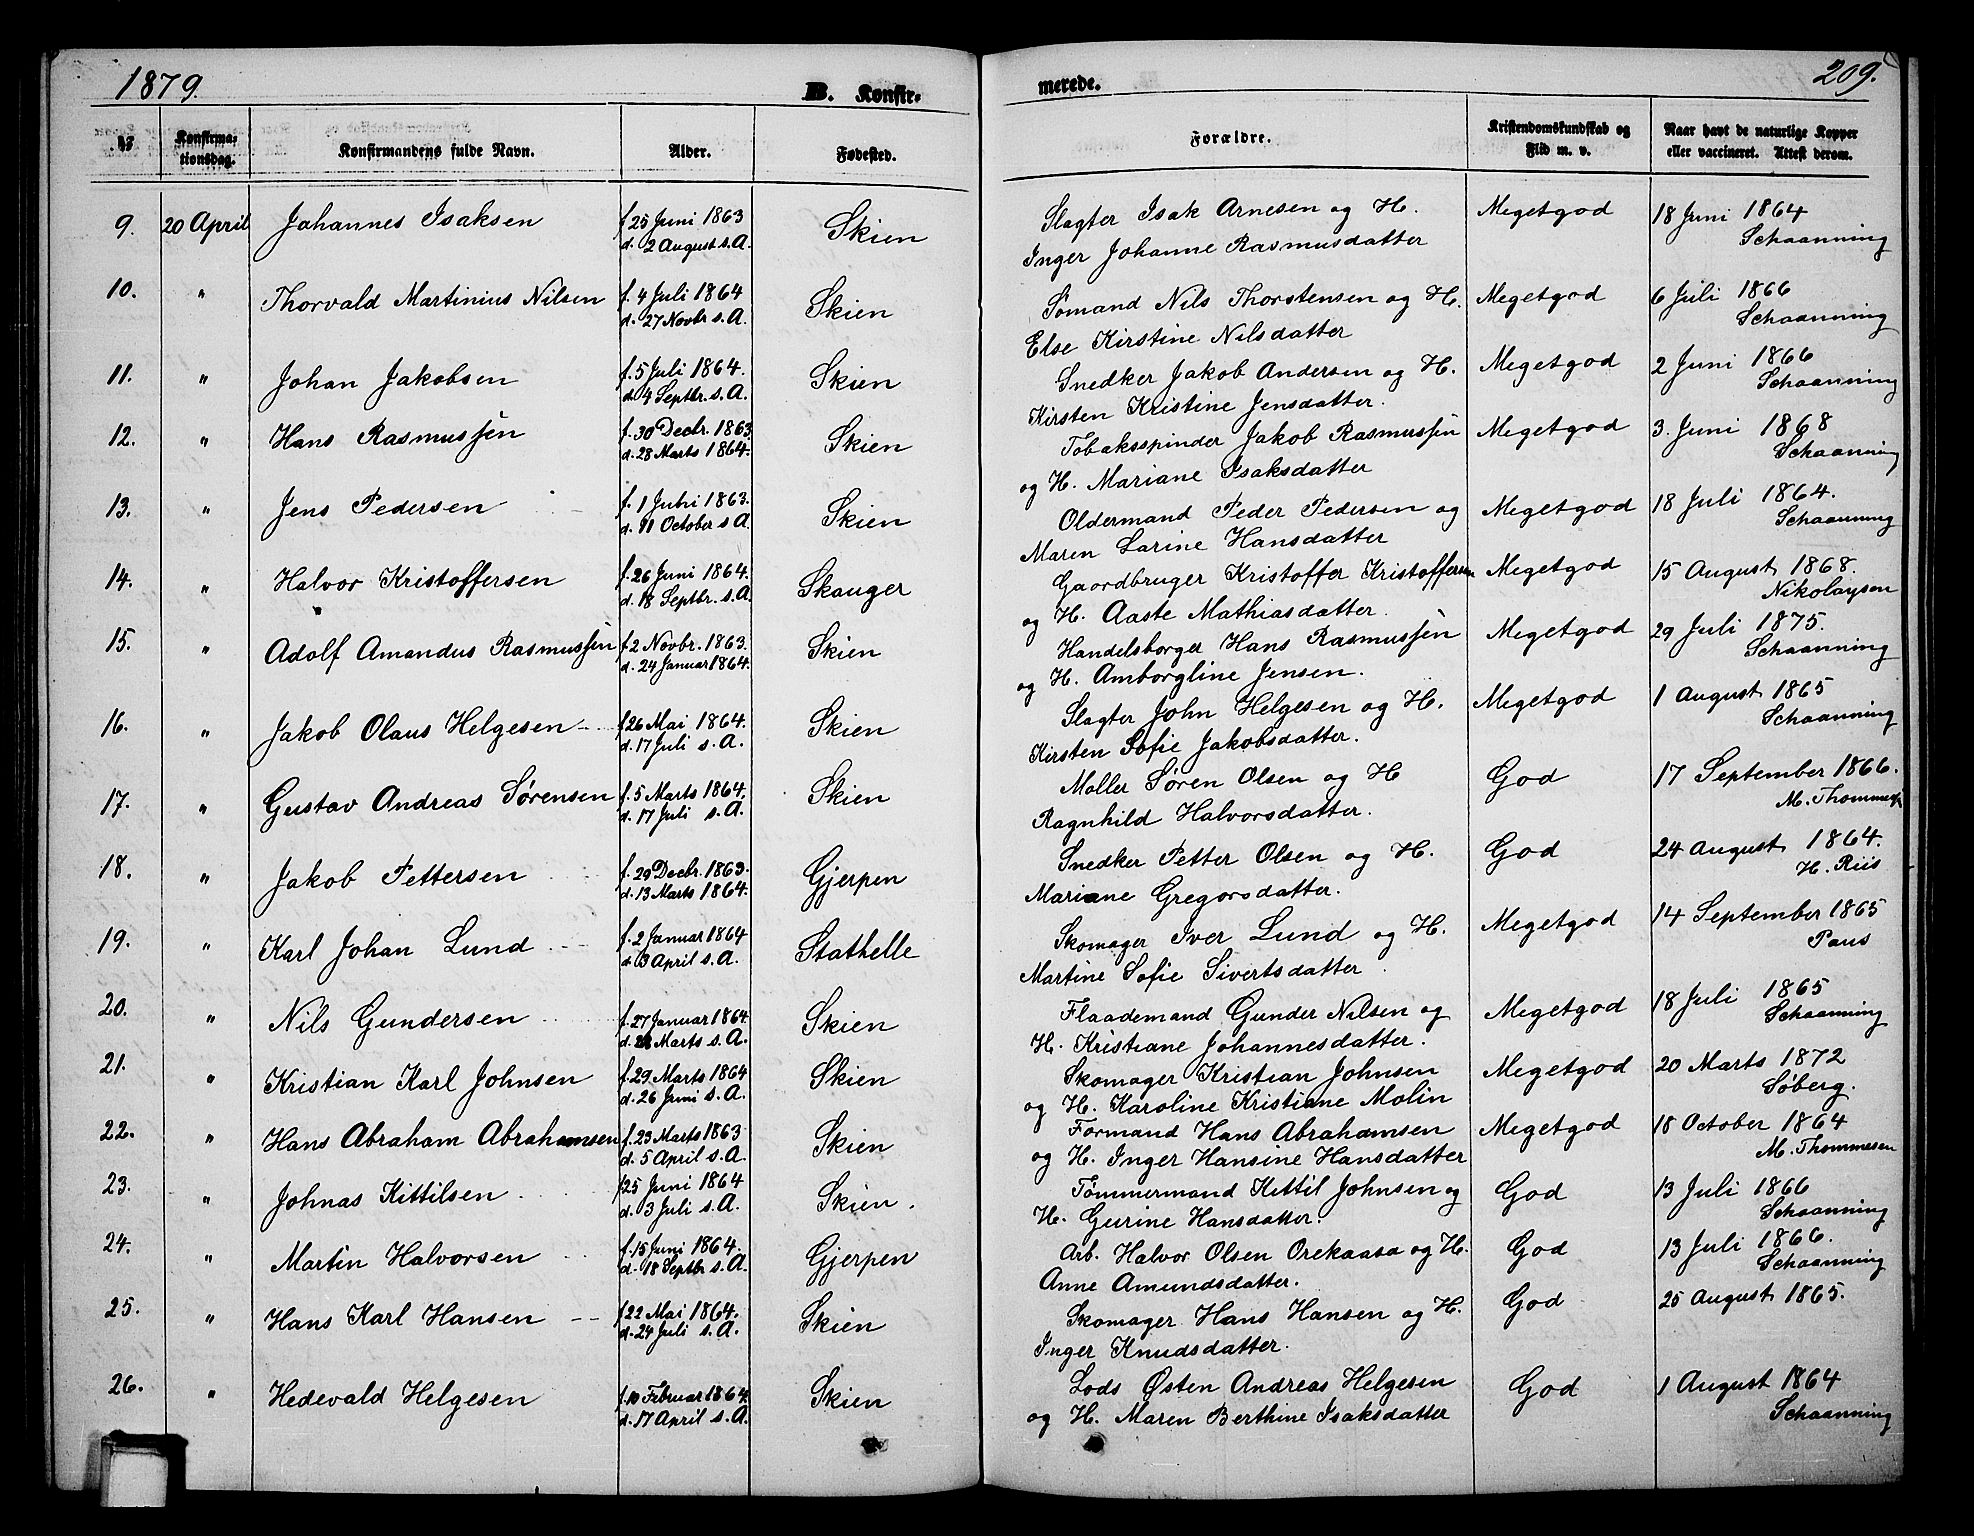 1879.
B. Konfir-
merede.
209.
№
Konfirma-
tionsdag.
Konfirmandens fulde Navn.
Alder.
Fødested.
Forældre.
Kristendomskundskab og
Flid m. v.
Naar havt de naturlige Kopper
eller vaccineret. Attest derom.
9. 20 April Johannes Isaksen f. 25 Juni 1863 Skien Slagter Isak Arnesen og H. Megetgod 18 Juni 1864
d. 2 August s. A. Inger Johanne Rasmusdatter Schaanning
10. " Thorvald Martinius Nilsen f. 4 Juli 1864 Skien Sømand Nils Thorstensen og H. Megetgod 6 Juli 1866
d. 27 Novbr. s. A. Else Kirstine Nilsdatter Schaanning
11. " Johan Jakobsen f. 5 Juli 1864. Skien Snedker Jakob Andersen og H. Megetgod 2 Juni 1866
d. 4 Septbr. s. A. Kirsten Kristine Jensdatter. Schaanning
12. " Hans Rasmussen f. 30 Decbr. 1863 Skien Tobaksspinder Jakob Rasmussen Megetgod 3. Juni 1868
d. 28 Marts 1864. og H. Mariane Isaksdatter Schaanning
13. " Jens Pedersen f. 1 Juni 1863. Skien Oldermand Peder Pedersen og Megetgod 18 Juli 1864.
d. 11 October s. A. Maren Larine Hansdatter Schaanning
14. " Halvor Kristoffersen f. 26 Juni 1864. Skauger Gaardbruger Kristoffer Kristoffersen Megetgod 15 August 1868.
d. 18 Septbr. s. A. og H. Aaste Mathiasdatter. Nikolaysen
15. " Adolf Amandus Rasmussen f. 2 Novbr. 1863. Skien Handelsborger Hans Rasmussen Megetgod 29 Juli 1875.
d. 24 Januar 1864. og H. Amborgline Jensen. Schaanning
16. " Jakob Olaus Helgesen f. 26 Mai 1864. Skien Slagter John Helgesen og H. Megetgod 1 August 1865
d. 17 Juli s. A. Kirsten Sofie Jakobsdatter. Schaanning
17. " Gustav Andreas Sørensen f. 5 Marts 1864. Skien Møller Søren Olsen og H God 17 September 1866.
d. 17 Juli s. A. Ragnhild Halvorsdatter. M. Thommesen
18. " Jakob Pettersen f. 29 Decbr. 1863. Gjerpen Snedker Petter Olsen og H. God 24 August 1864.
d. 13 Marts 1864. Mariane Gregorsdatter. H. Riis
19. " Karl Johan Lund f. 2 Januar 1864 Stathelle Skomager Iver Lund og H. Megetgod 14 September 1865
d. 3 April s. A. Martine Sofie Sivertsdatter. Paus
20. " Nils Gundersen f. 27 Januar 1864. Skien Flaademand Gunder Nilsen og Megetgod 18 Juli 1865
d. Marts s. A. H. Kristiane Johannesdatter. Schaanning
21. " Kristian Karl Johnsen f. 29. Marts 1864 Skien Skomager Kristian Johnsen Megetgod 20 Marts 1872
d. 26 Juni s. A. og H. Karoline Kristiane Molin Søberg.
22. " Hans Abraham Abrahamsen f. 23 Marts 1863 Skien Formand Hans Abrahamsen Megetgod 18 October 1864
d. 5 April s. A. og H. Inger Hansine Hansdatter M. Thommesen
23. " Johnas Kittilsen f 25 Juni 1864 Skien. Tømmermand Kittil Johnsen og God 13 Juli 1866
d. 3 Juli s. A. H. Gurine Hansdatter. Schaanning
24. " Martin Halvorsen f. 15 Juni 1864. Gjerpen Arb. Halvor Olsen Orekaasa og H. God 13 Juli 1866.
d. 18 Septbr s. A. Anne Amundsdatter. Schaanning
25. " Hans Karl Hansen f 22 Mai 1864. Skien Skomager Hans Hansen og H. God 25 August 1865.
d. 24 Juli s. A. Inger Knudsdatter.
26. " Hedevald Helgesen f. 10 Februar 1864. Skien Lods Østen Andreas Helgesen God 1 August 1864
d. 17 April s. A. og H. Maren Berthine Isaksdatter Schaanning